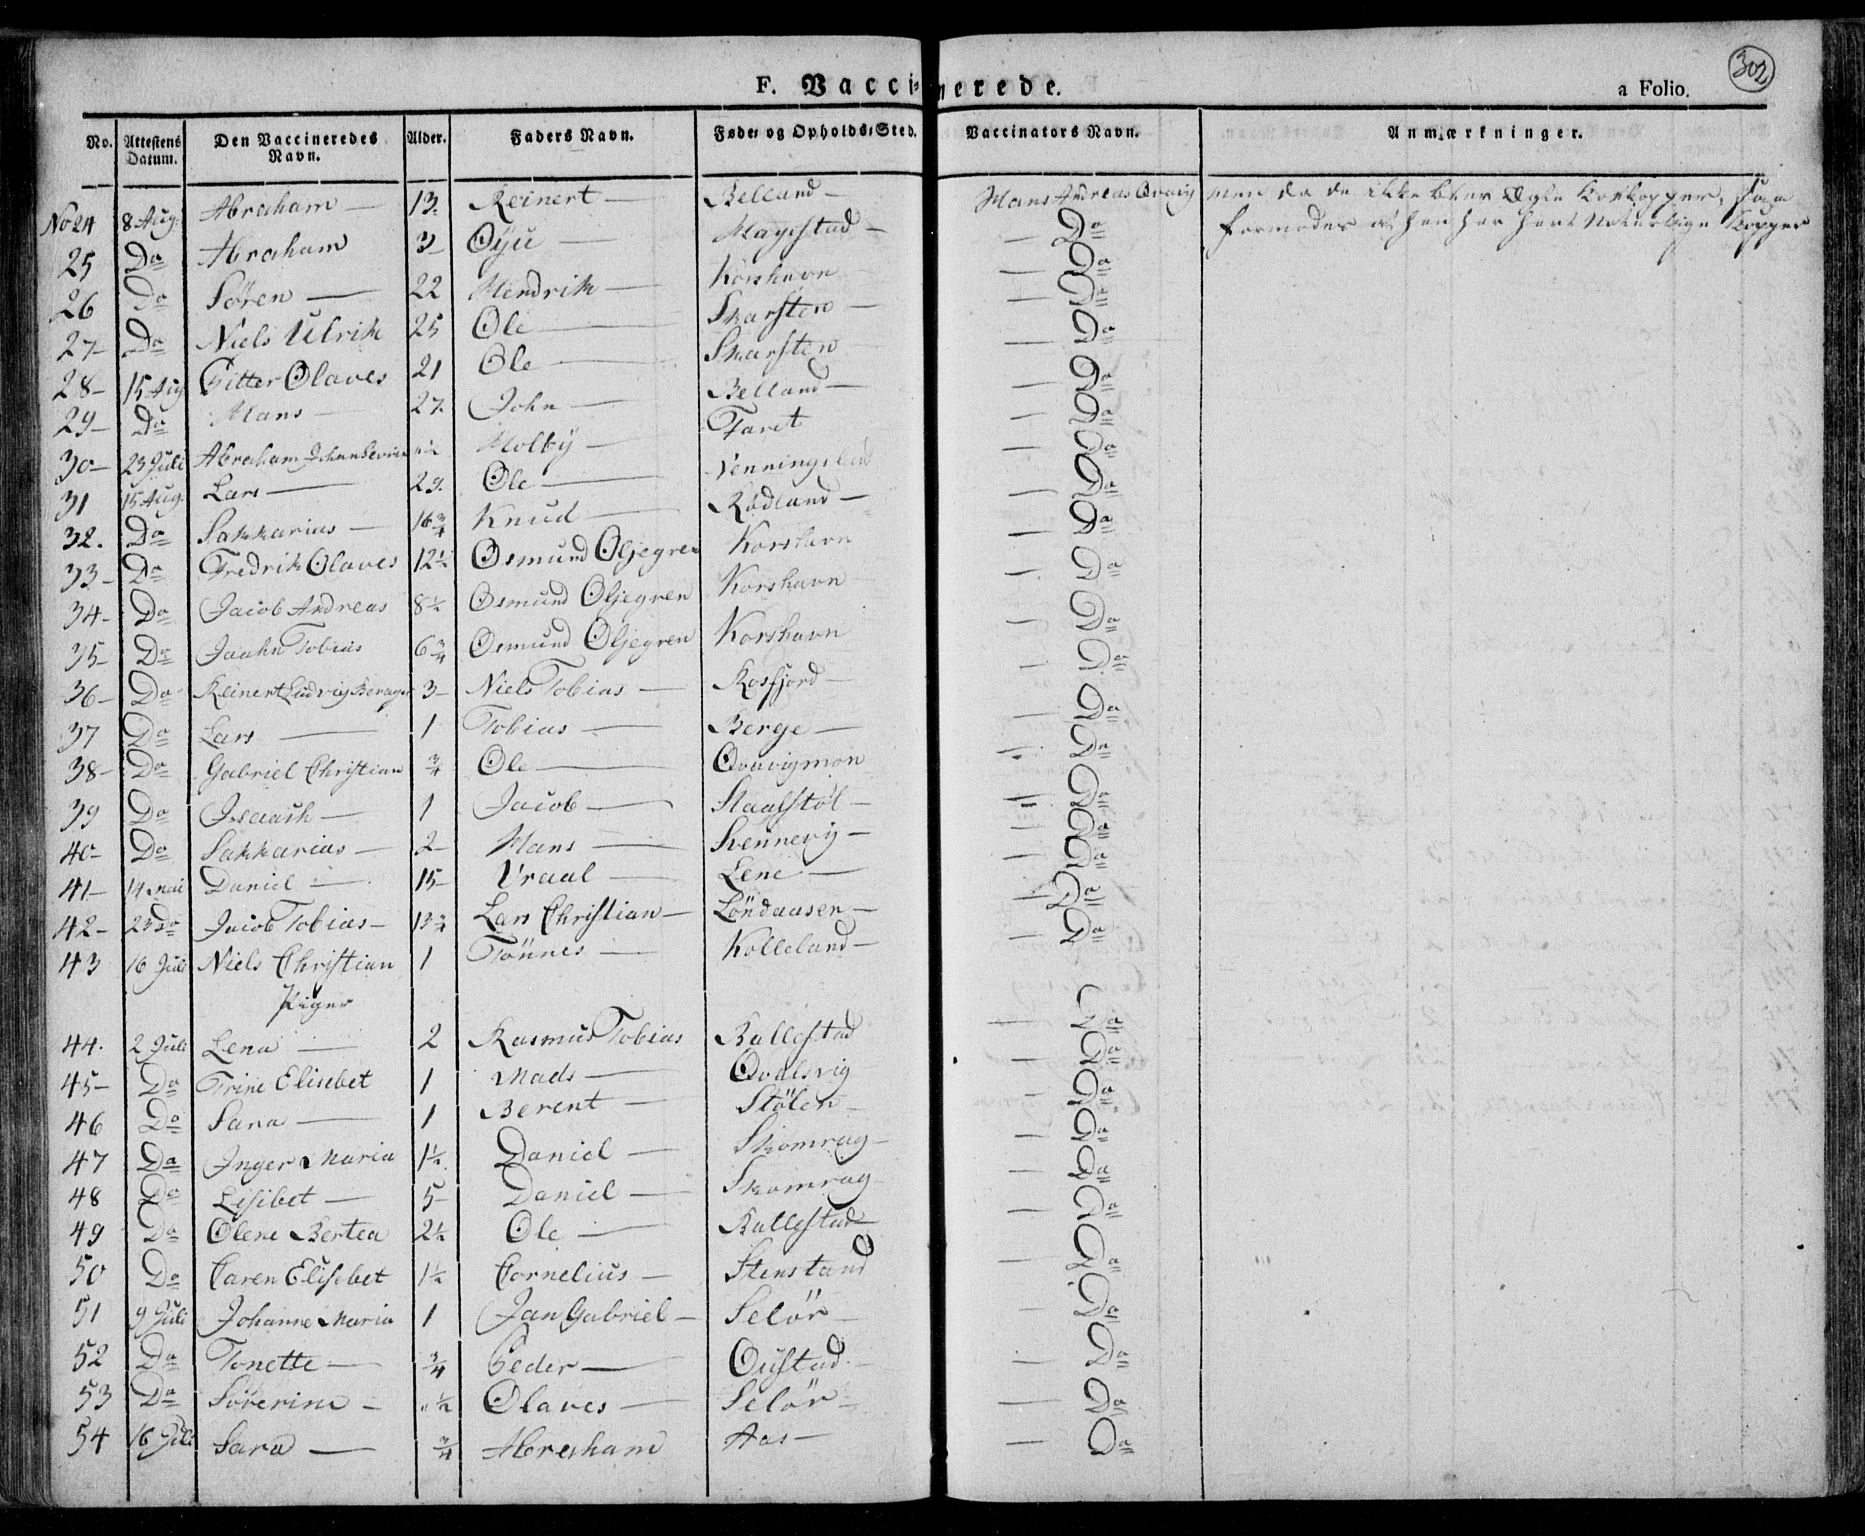 302
F. Vaccinerede. a Folio.
No. Attestens Datum. Den Vaccineredes Navn. Alder. Faders Navn. Føde- og Opholds-Sted. Vaccinators Navn. Anmærkninger.
No 24 8 Aug. Abraham — 13. Reinert — Belland — Hans Andreas men da de ikke blev Ægte Kokopper, saa
formodes at han har havt Naturlige Kopper
25 Do Abraham 3 — Magestad — — Do
26 Do Søren — 22 Hendrik — Korshavn — Do
27- Do Niels Ulrik 25 Ole — Skarsten — — Do
28- 15 Aug Olaves 21 Ole — Skarsten — Do
29- Do Hans — 27. John — Belland — — Do
30- 23 Juli Abraham Johan ½ Holby — Faret — Do
31 15 Aug. Lars — 29. Ole — — Do
32. Do Sakkarias — 16¾ Knud — Rødland — — Do
33- Do Fredrik Olaves 12½ Osmund Oljegren Korshavn — Do
34- Do Jacob Andreas 8½ Osmund Oljegren Korshavn — Do
35- Do Tobias 6¾ Osmund Oljegren Korshavn — Do
36- Do Reinert Ludvig 3- Niels Tobias — Rosfjord — — Do
37 Do Lars — 1 Tobias — Berge — — Do
38- Do Gabriel Christian ¾ Ole — Qvavigmon — Do
39 Do Iseach — 1 Jacob — Staalstøl — — Do
40- Do Sakkarias — 2- Hans — Svennevig — — Do
41- 14 Mai Daniel — 15- Vraal — Lene — — Do
42- 23 Do Jacob Tobias — 13¾ Lars Christian — Löndausen — — Do
43 16 Juli Niels Christian 1 Tönnes — Kolleland — — Do
Piger
44. 2 Juli Lena — 2 Rasmus Tobias Ballestad — Do
45- Do Trine Elisebet 1 Mads — Qvalsvig — Do
46 Do Sara — 1 Berent — Stölen — — Do
47 Do Inger Maria 1½ Daniel — Skomrag — — Do
48 Do Lisibet — 5- Daniel — Skomrag — — Do
49 Do Olene Bertea 2½ Ole — Ballestad — Do
50 Do Caren Elisebet 1½ Cornelius — Stensland — Do
51 9 Juli Johanne Maria 1 Jan Gabriel — Selör — — Do
52 Do Tonette — ¾ Peder — Oustad. — — Do
53 Do Söverine — ½ Olaves — Selör — — Do
54 16 Juli Sara — ¾ Abraham Aas — — Do